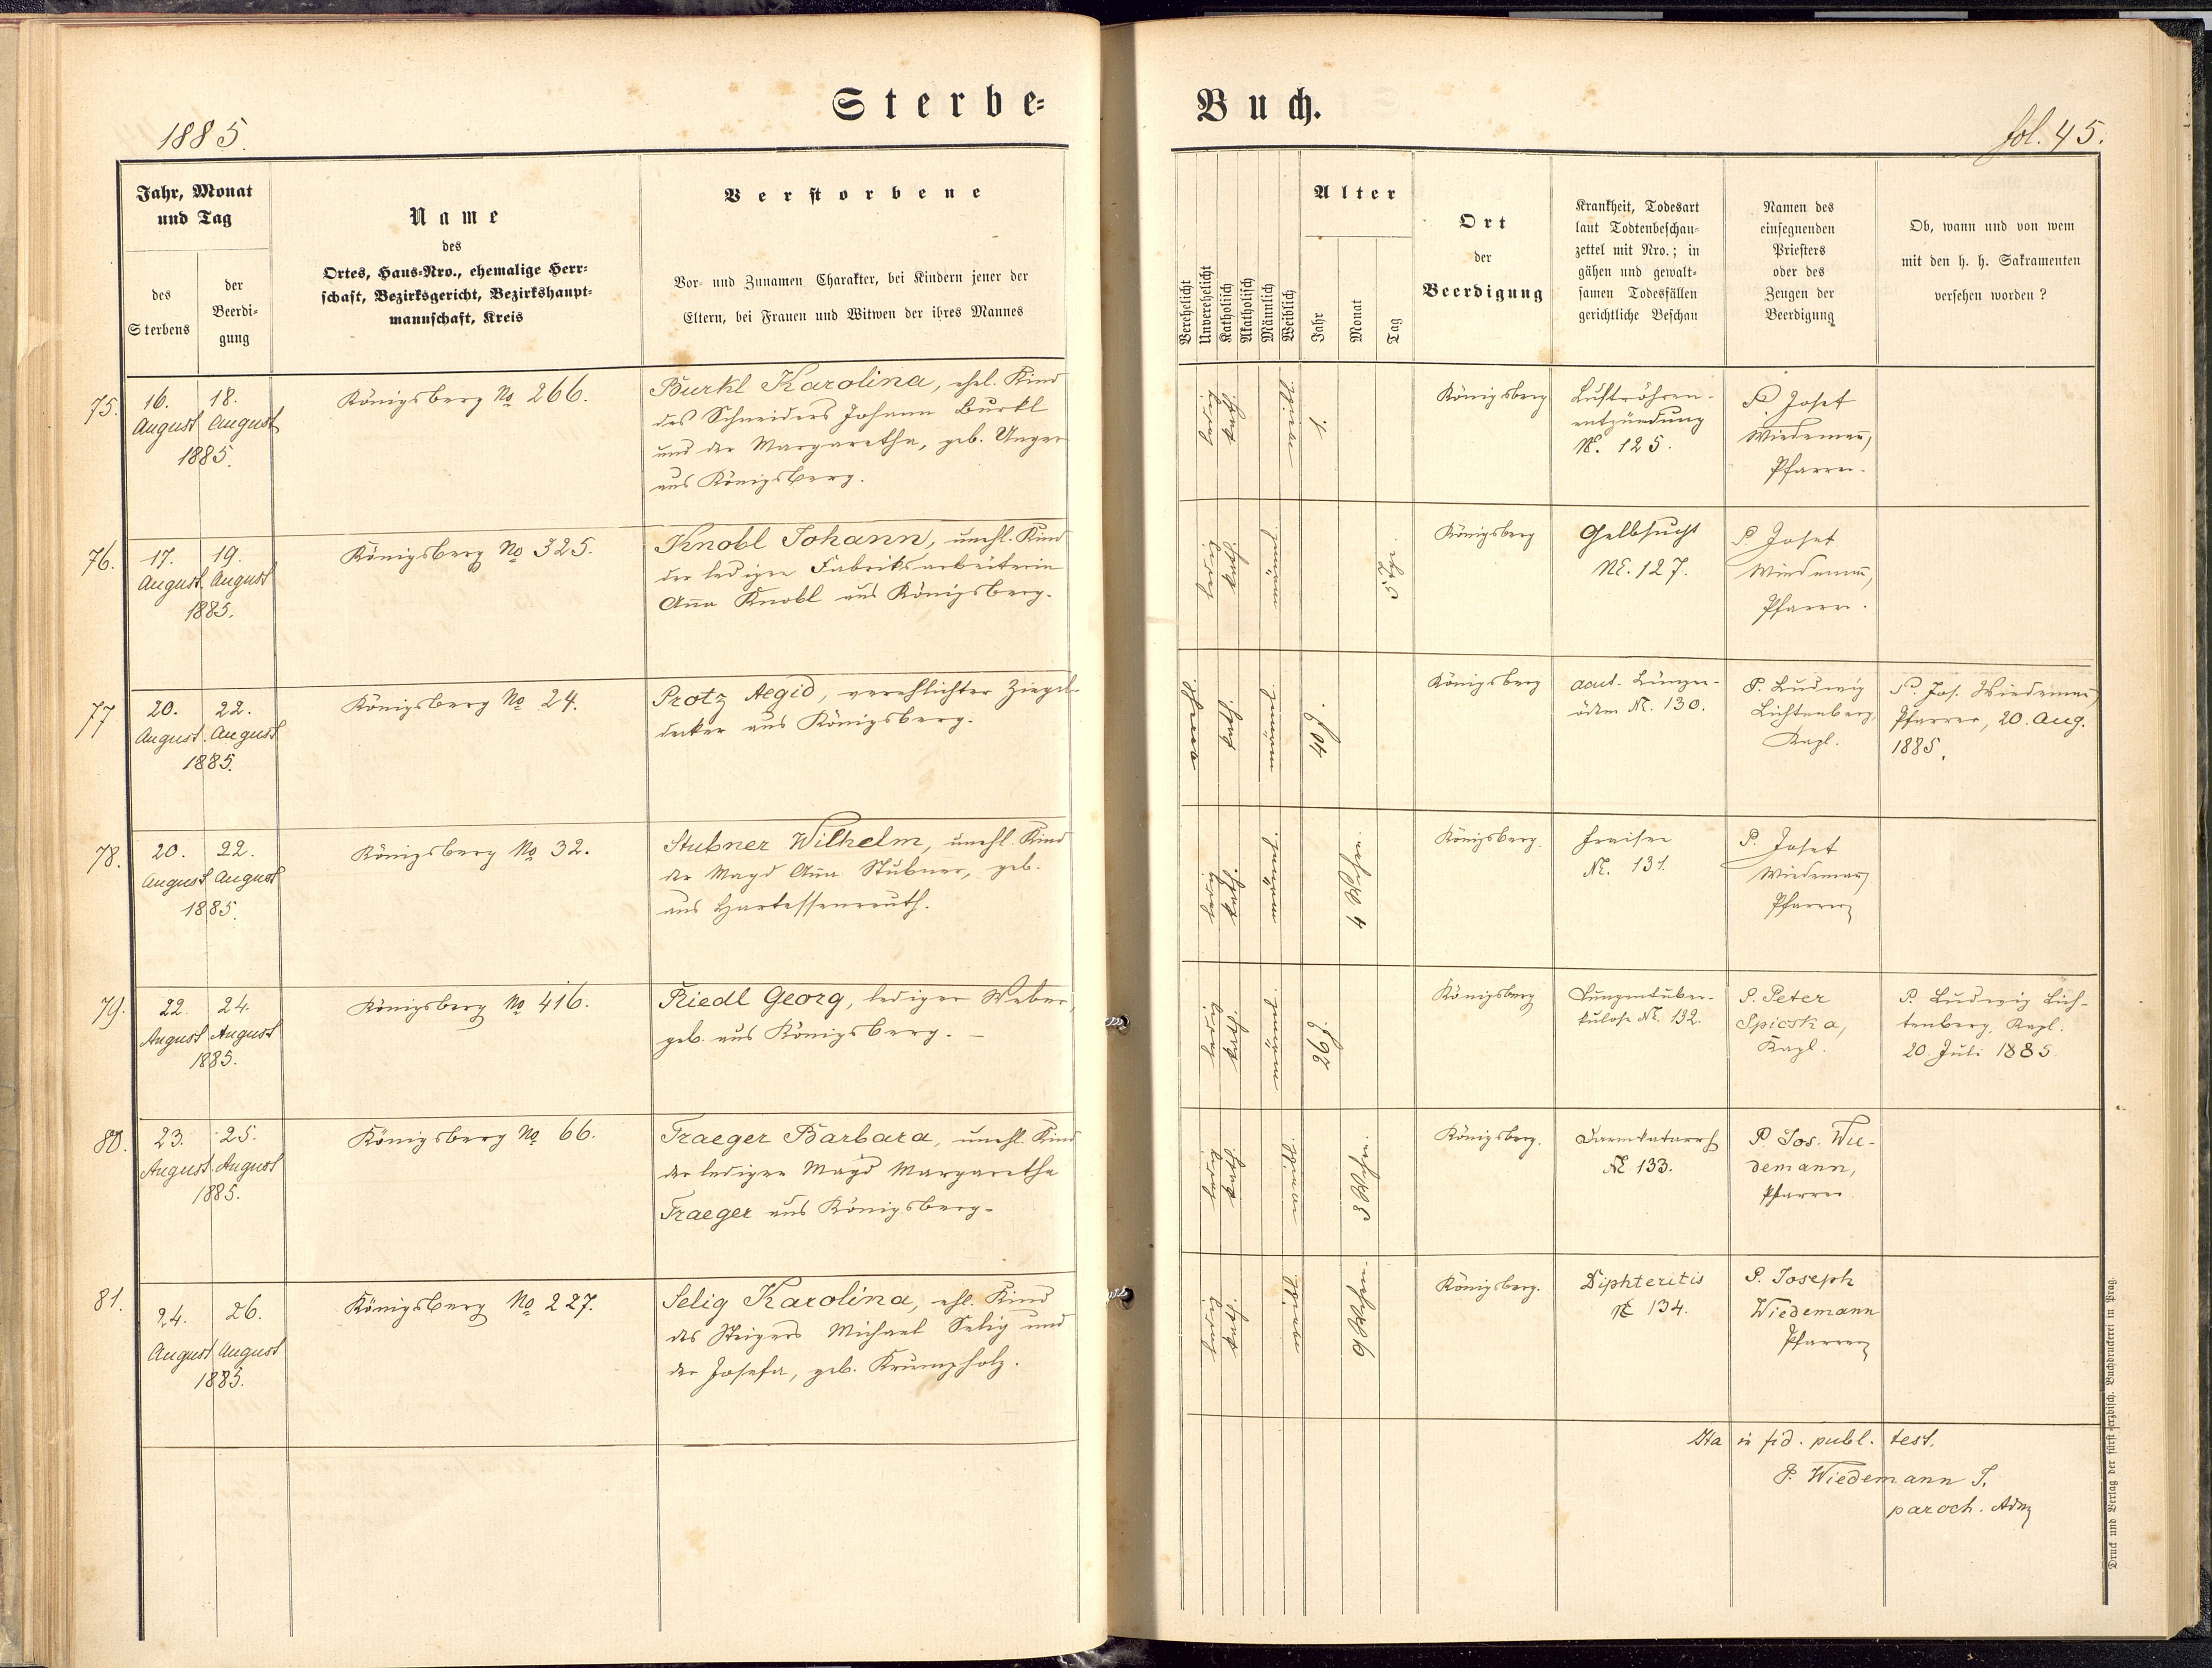 Sterbe-
Buch.
1885.
fol. 45.
Jahr, Monat
und Tag
des
Sterbens
der
Beerdi-
gung
Name
des
Ortes, Haus-Nro., ehemalige Herr-
schaft, Bezirksgericht, Bezirkshaupt-
mannschaft, Kreis
Verstorbene
Vor- und Zunamen Charakter, bei Kindern jener der
Eltern, bei Frauen und Witwen der ihres Mannes
Verehelicht
Unverehelicht
Katholisch
Akatholisch
Männlich
Weiblich
Alter
Jahr
Monat
Tag
Ort
der
Beerdigung
Krankheit, Todesart
laut Todtenbeschau-
zettel mit Nro.; in
gähen und gewalt-
samen Todesfällen
gerichtliche Beschau
Namen des
einsegnenden
Priesters
oder des
Zeugen der
Beerdigung
Ob, wann und von wem
mit den h. h. Sakramenten
versehen worden?
75.
16. 18.
August August
1885.
Königsberg No 266.
Burkl Karolina, ehel. Kind
des Schneiders Johann Burkl
und der Margaretha, geb. Unger
aus Königsberg.
1
Königsberg
Luftröhren-
entzündung
N. 125.
P. Josef
Wiedemañ,
Pfarrer.
76.
17. 19.
August. August
1885.
Königsberg No 325.
Knobl Johann, unehl. Kind
der ledigen Fabriksarbeiterin
Aña Knobl aus Königsberg.
Königsberg
Gelbsucht
N. 127.
P. Josef
Wiedemañ,
Pfarrer.
77.
20. 22.
August. August
1885.
Königsberg No 24.
Protz Aegid, verehlichter Ziegel-
decker aus Königsberg.
40 J.
Königsberg
acut. Lungen-
ödem N. 130.
P. Ludwig
Lichtenberg,
Kapl.
P. Jos. Wiedemañ,
Pfarrer, 20. Aug.
1885.
78.
20. 22.
August August
1885.
Königsberg No 32.
Stubner Wilhelm, unehl. Kind
der Magd Aña Stubner, geb.
aus Hartessenreuth.
4 Wochen
Königsberg.
Fraisen
N. 131.
P. Josef
Wiedemañ
Pfarrer
79.
22. 24.
August August
1885.
Königsberg No 416.
Riedl Georg, lediger Weber,
geb. aus Königsberg.
26 J.
Königsberg
Lungentuber-
kulose N. 132.
P. Peter
Spicska,
Kapl.
P. Ludwig Lich-
tenberg, Kapl.
20. Juli 1885.
80.
23. 25.
August. August
1885.
Königsberg No 66.
Traeger Barbara, unehl. Kind
der ledigen Magd Margaretha
Traeger aus Königsberg.
3 Wochen
Königsberg.
Darmkatarrh
N. 133.
P. Jos. Wie-
demann,
Pfarrer
81.
24. 26.
August August
1885.
Königsberg No 227.
Selig Karolina, ehl. Kind
des Steigers Michael Selig und
der Josefa, geb. Krumpholz.
Königsberg.
Diphteritis
N. 134.
P. Joseph
Wiedemann
Pfarrer
Ita in fid. publ. test.
P. Wiedemann J.
paroch. Adm
Druck und Verlag der fürst-erzbisch. Buchdruckerei in Prag.